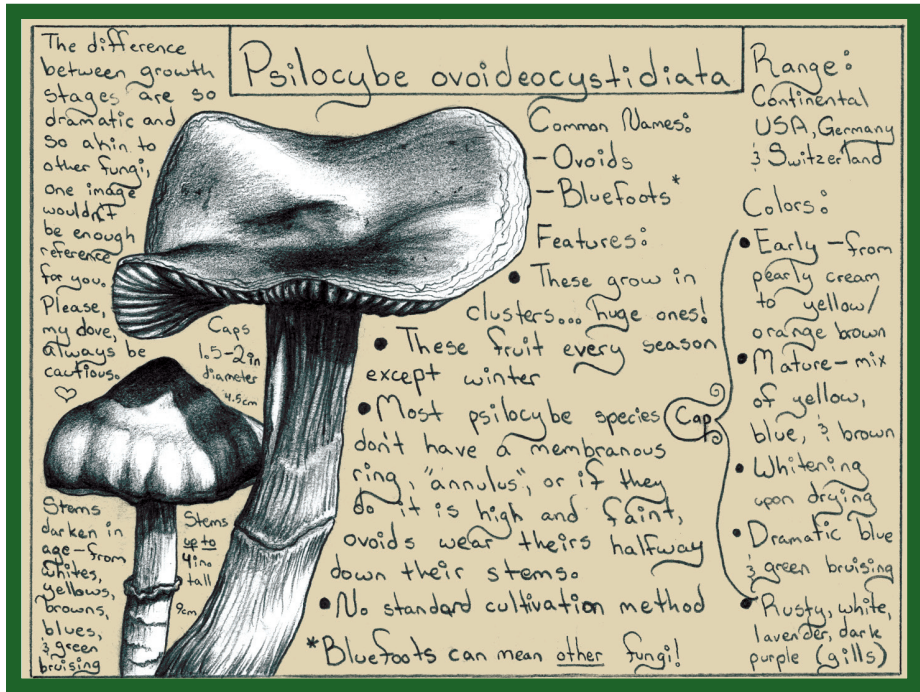 Psilocybe ovoideocystidiata
The difference
between growth
stages are so
dramatic and
so akin to
other fungi,
one image
wouldn't
be enough
reference
for you.
Please,
my dove,
always be
cautious.
♡
Caps
1.5-2in
diameter
4.5cm
Stems
darken in
age-from
whites,
yellows,
browns,
blues,
& green
bruising
Stems
up to
4in.
tall
9cm
Common Names:
-Ovoids
-Bluefoots*
Features:
• These grow in
clusters... huge ones!
• These fruit every season
except winter
• Most psilocybe species
don't have a membranous
ring, "annulus", or if they
do it is high and faint,
ovoids wear theirs halfway
down their stems.
• No standard cultivation method
*Bluefoots can mean other fungi!
Range:
Continental
USA, Germany
& Switzerland
Colors:
Cap
• Early -from
pearly cream
to yellow/
orange brown
• Mature- mix
of yellow,
blue, & brown
• Whitening
upon drying
• Dramatic blue
& green bruising
• Rusty, white,
lavender, dark
purple (gills)